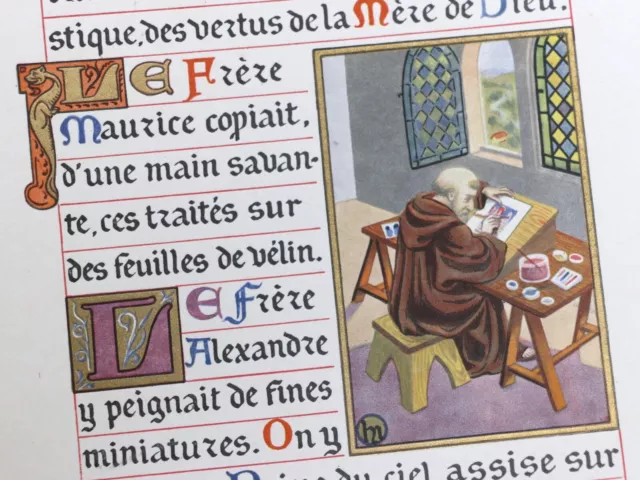 stique, des vertus de la Mère de Dieu.
LE Frère
Maurice copiait,
d'une main savan-
te, ces traités sur
des feuilles de vélin.
LE Frère
Alexandre
y peignait de fines
miniatures. On y
du ciel assise sur